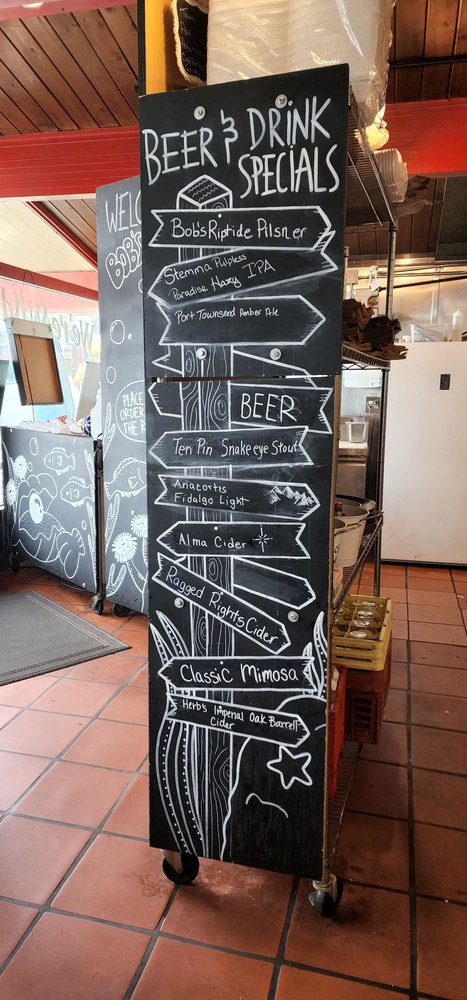 BEER & DRINK
SPECIALS
Bob's Riptide Pilsner
Stemma Pulpless
Paradise Hazy IPA
Port Townsend Amber Ale
BEER
Ten Pin Snakeeye Stout
Anacortes
Fidalgo Light
Alma Cider
Ragged Rights Cider
Classic Mimosa
Herb's Imperial Oak Barrell
Cider
WELC
BOB'S
PLACE
ORDER
THE R